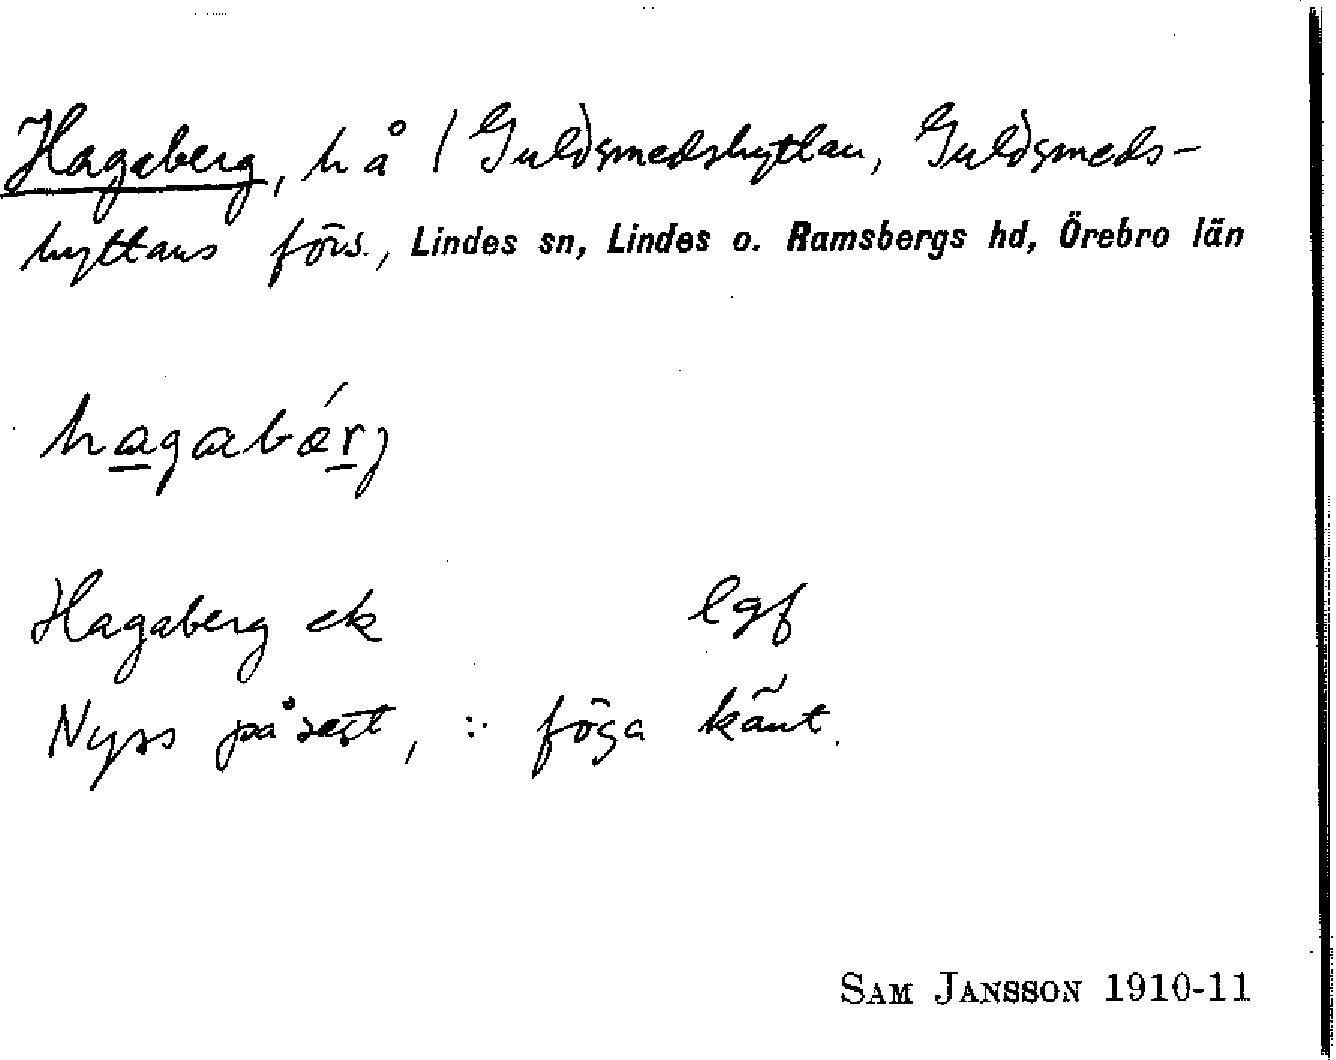 Hagaberg, hå / Guldsmedshyttan, Guldsmeds-
hyttans förs., Lindes sn, Lindes o. Ramsbergs hd, Örebro län
hagabǽrj
Hagaberg ek lgf
Nyss påsatt, :. föga känt.
SAM JANSSON 1910-11